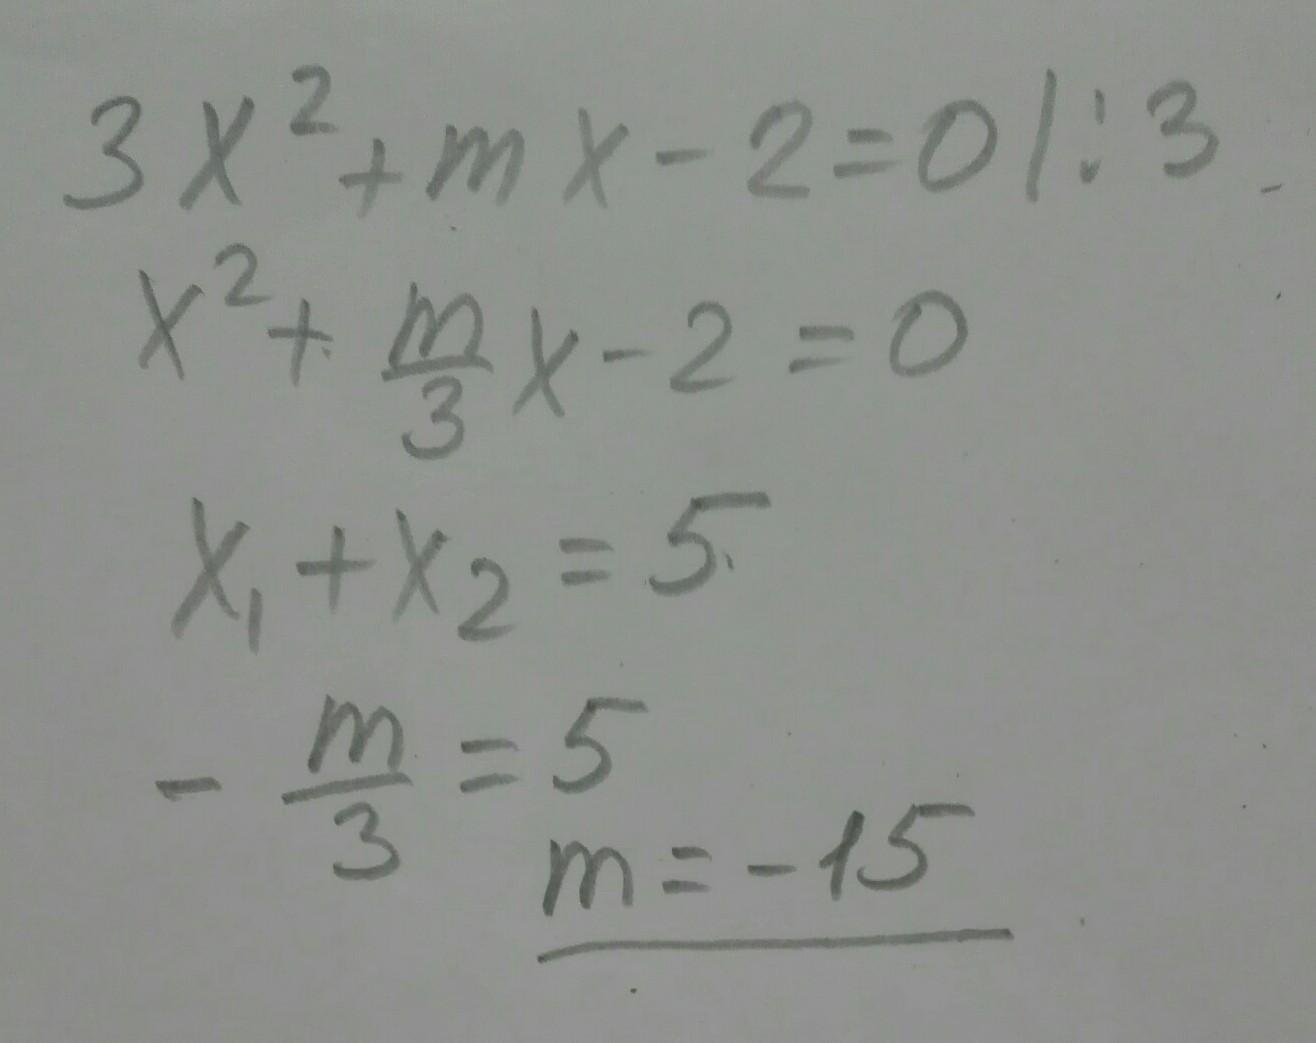 3x² + mx - 2 = 0 | : 3
x² + m/3 x - 2 = 0
x₁ + x₂ = 5
- m/3 = 5
m = -15